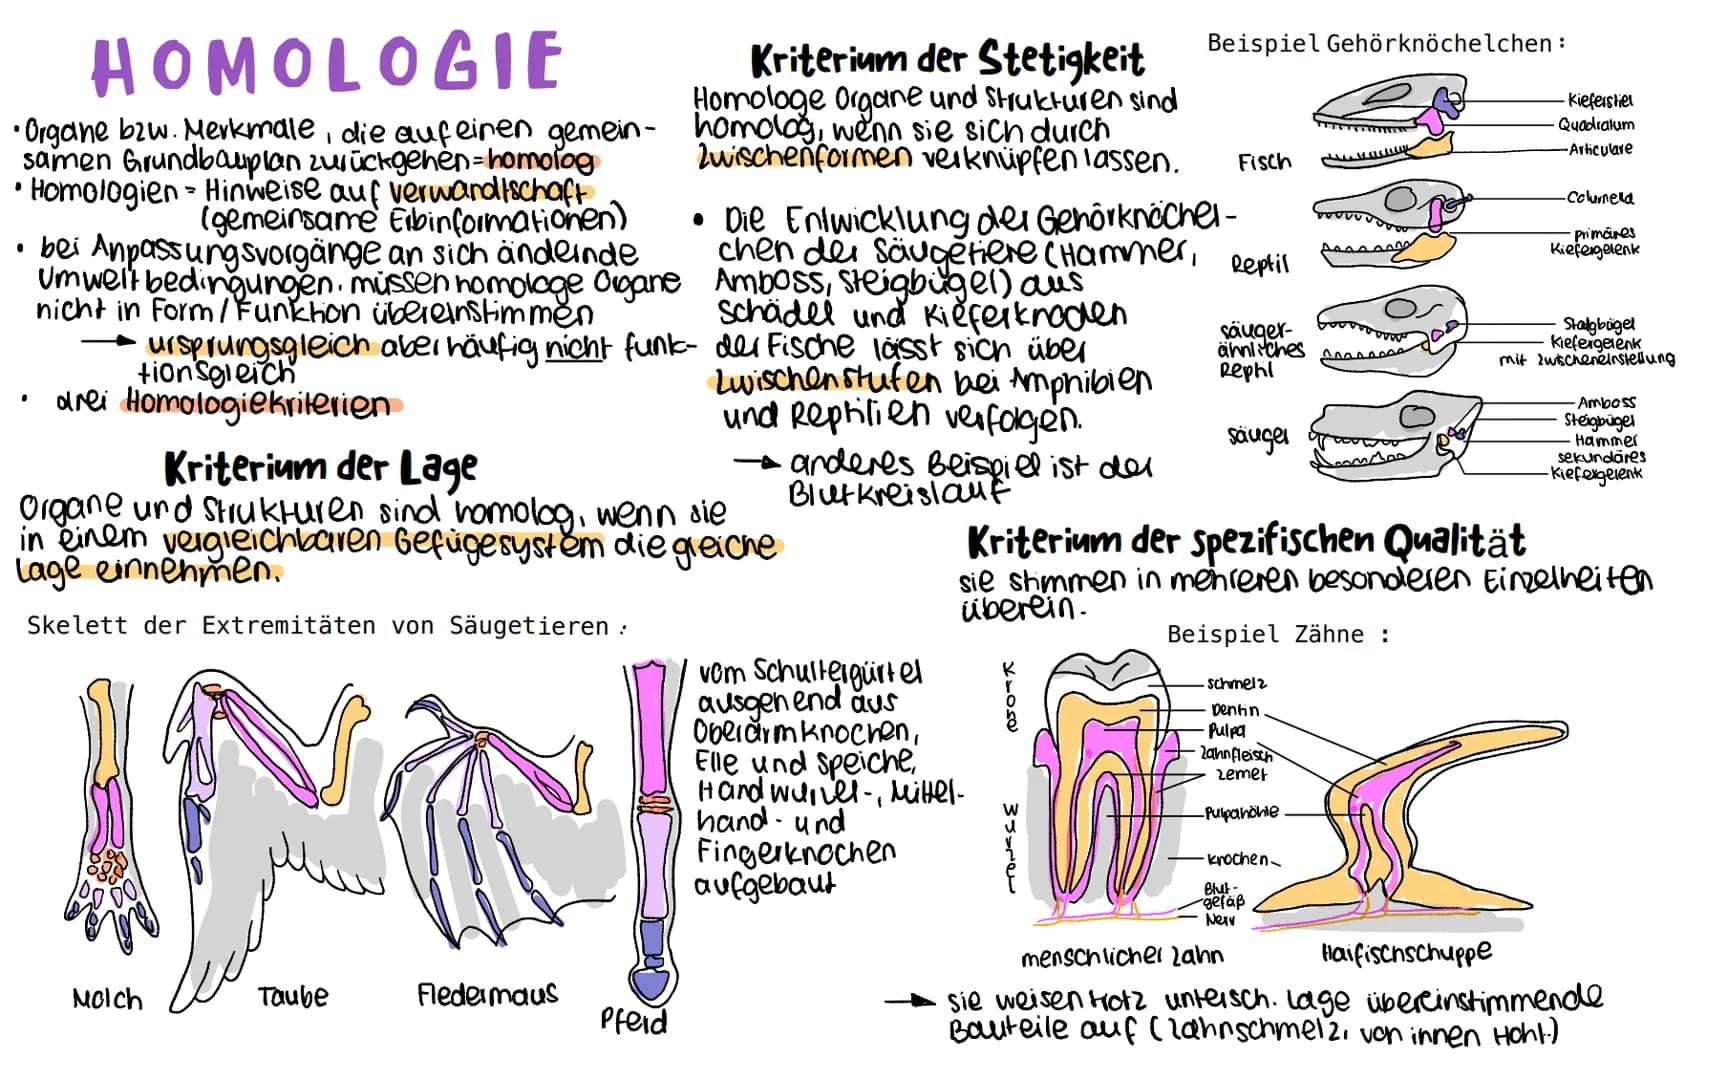 HOMOLOGIE
• Organe bzw. Merkmale, die auf einen gemein-
samen Grundbauplan zurückgehen = homolog
• Homologien = Hinweise auf verwandtschaft
(gemeinsame Erbinformationen)
• bei Anpassungsvorgänge an sich ändernde
Umweltbedingungen, müssen homologe Organe
nicht in Form/Funktion übereinstimmen
→ ursprungsgleich aber häufig nicht funk-
tionsgleich
• drei Homologiekriterien
Kriterium der Lage
Organe und Strukturen sind homolog, wenn sie
in einem vergleichbaren Gefügesystem die gleiche
Lage einnehmen.
Skelett der Extremitäten von Säugetieren :
Molch
Taube
Fledermaus
Pferd
vom Schultergürtel
ausgehend aus
Oberarmknochen,
Elle und Speiche,
Handwurzel-, Mittel-
hand- und
Fingerknochen
aufgebaut
Kriterium der Stetigkeit
Homologe Organe und Strukturen sind
homolog, wenn sie sich durch
Zwischenformen verknüpfen lassen.
• Die Entwicklung der Gehörknöchel-
chen der Säugetiere (Hammer,
Amboss, Steigbügel) aus
Schädel und Kieferknochen
der Fische lässt sich über
Zwischenstufen bei Amphibien
und Reptilien verfolgen.
→ anderes Beispiel ist der
Blutkreislauf
Beispiel Gehörknöchelchen :
Fisch
Kieferstiel
Quadratum
Articulare
Reptil
Columella
primäres
Kiefergelenk
säuger-
ähnliches
Reptil
Steigbügel
Kiefergelenk
mit Zwischeneinstellung
säuger
Amboss
Steigbügel
Hammer
sekundäres
Kiefergelenk
Kriterium der spezifischen Qualität
sie stimmen in mehreren besonderen Einzelheiten
überein.
Beispiel Zähne :
Krone
Wurzel
Schmelz
Dentin
Pulpa
Zahnfleisch
Zemet
Pulpahöhle
Knochen
Blut-
gefäß
Nerv
menschlicher Zahn
Haifischschuppe
→ sie weisen trotz untersch. Lage übereinstimmende
Bauteile auf (Zahnschmelz, von innen Hohl.)